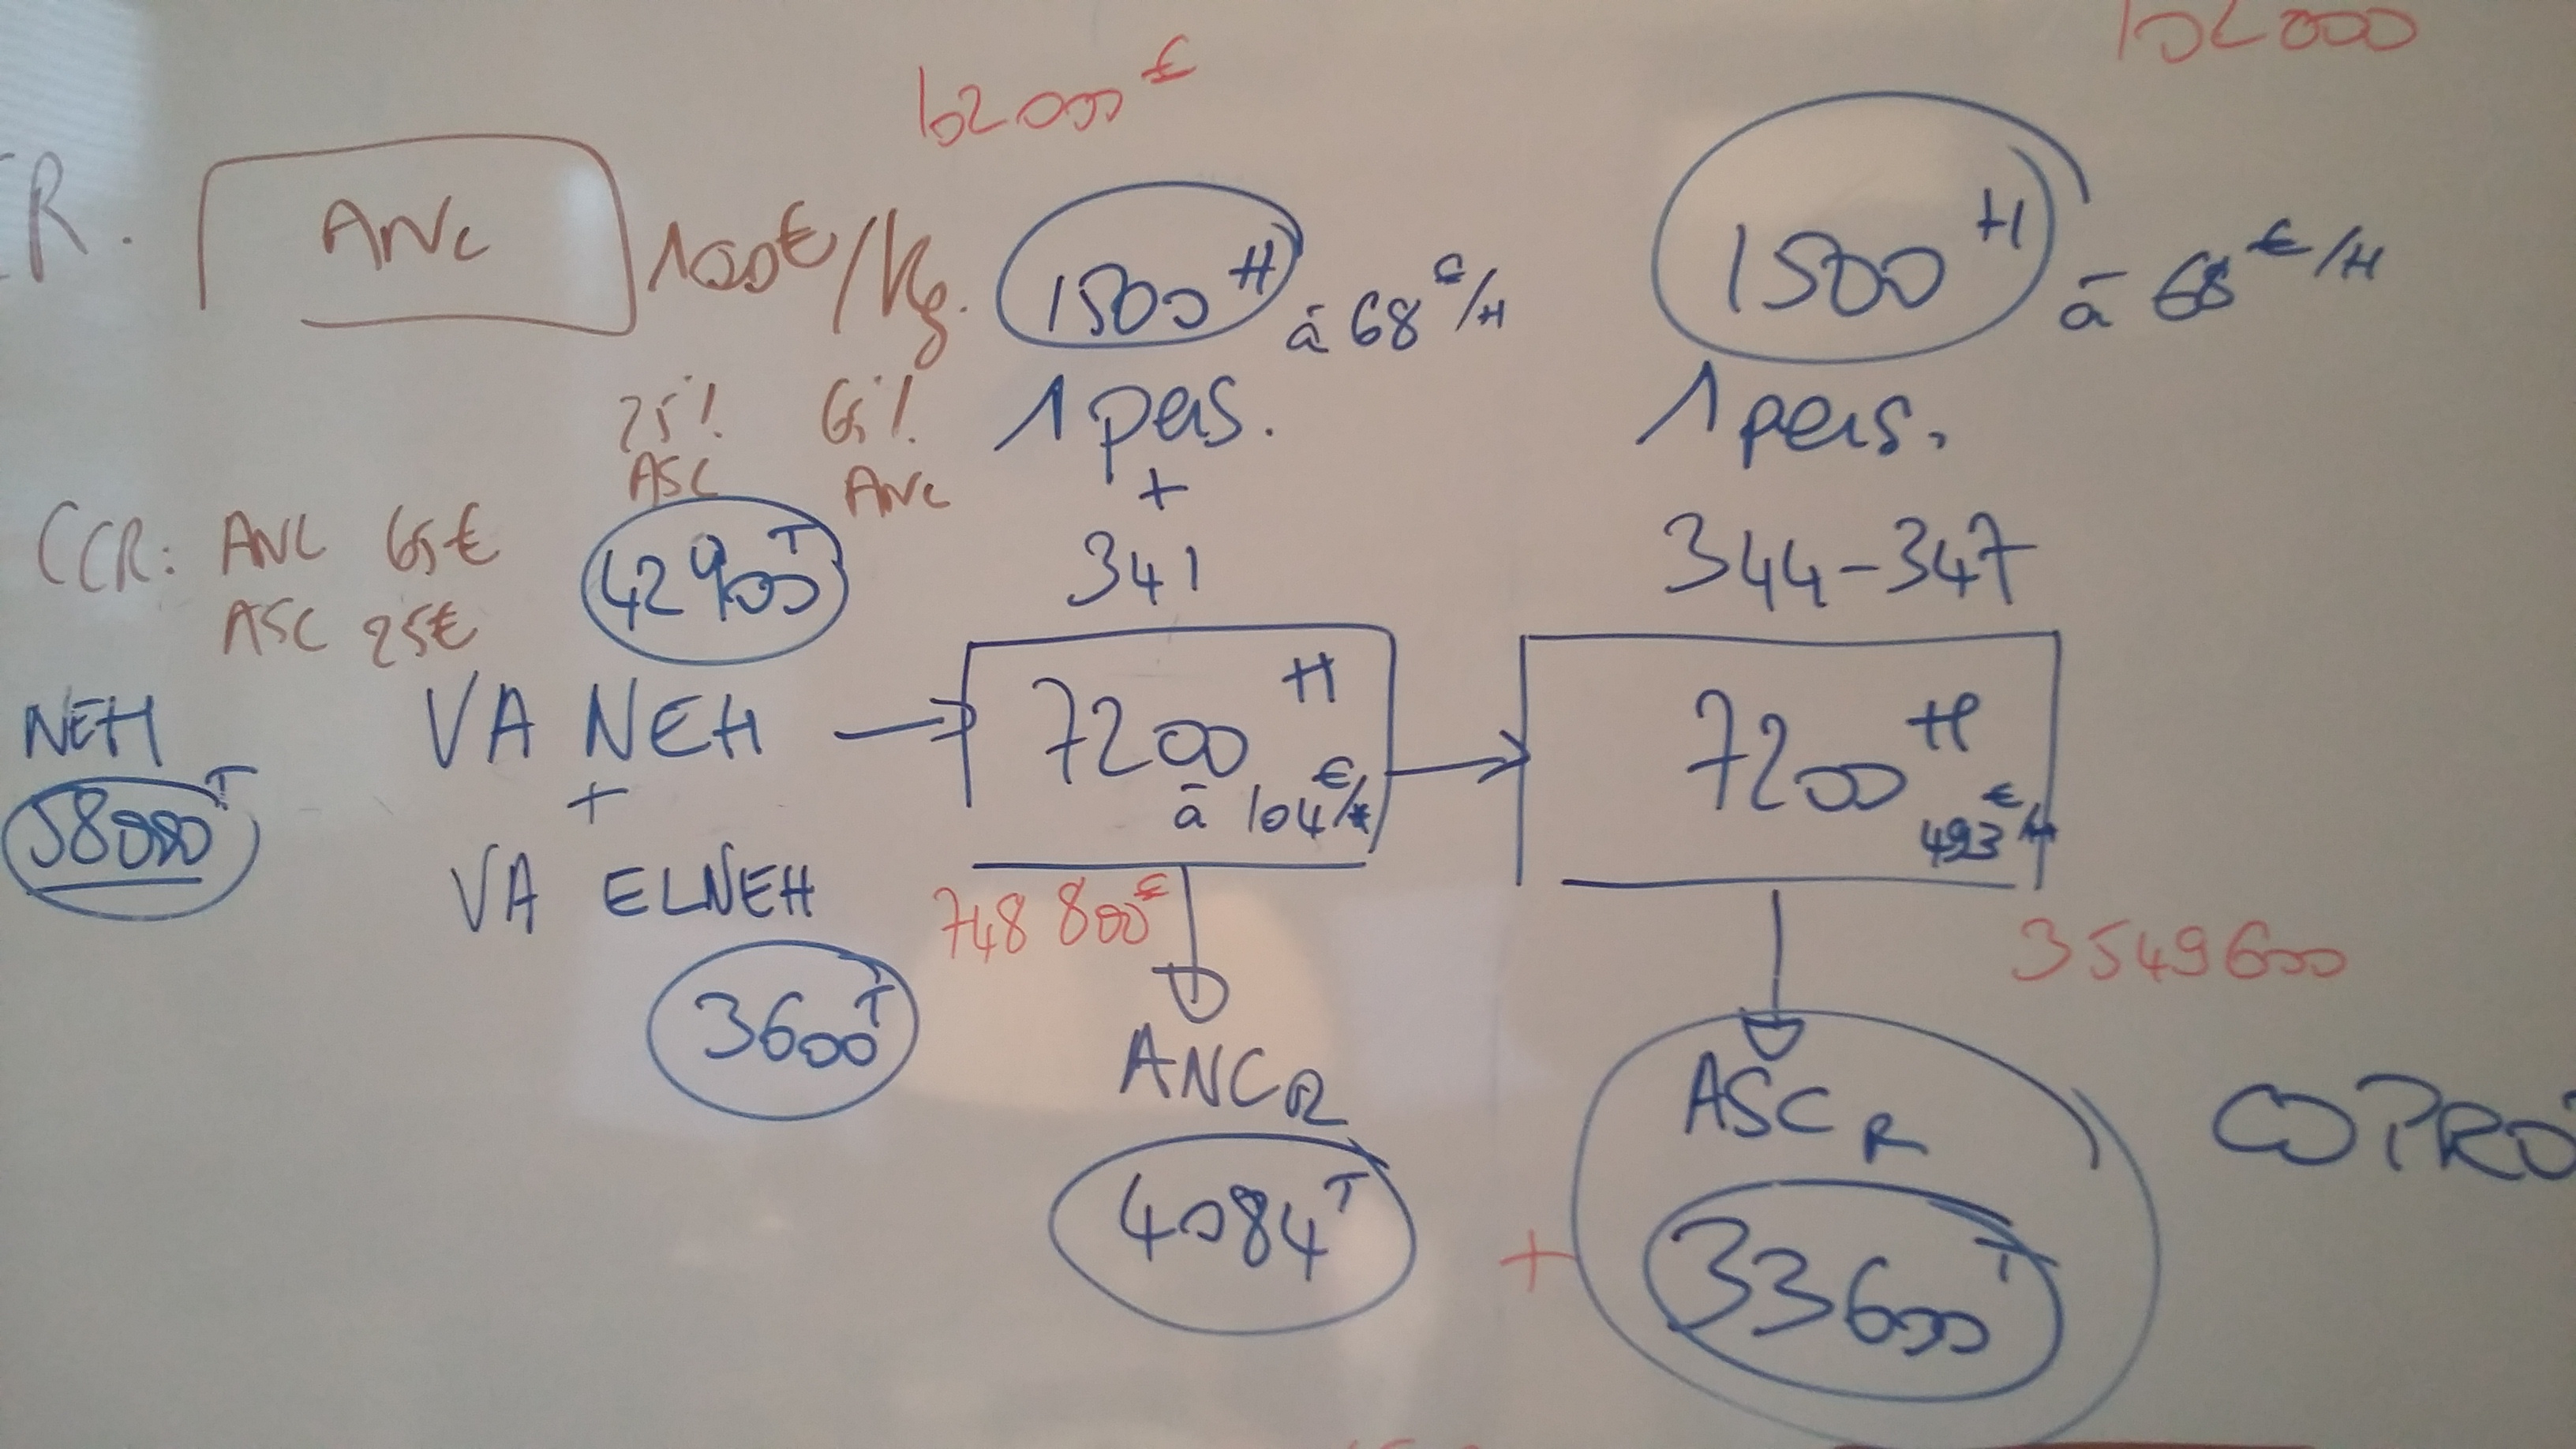 102000
102000 €
R.
ANC
100€/Kg.
1500 H
à 68 €/H
1500 H
à 68 €/H
25%
ASC
65%
ANC
1 pers.
+
341
1 pers.
344-347
CCR: ANC 65€
ASC 25€
42900 T
NEH
58000 T
VA NEH
+
VA ELNEH
3600 T
7200 H
à 104 €/H
7200 H
493 €/H
748 800 €
3549600
ANC R
4084 T
+
ASC R
33600 T
COPRO